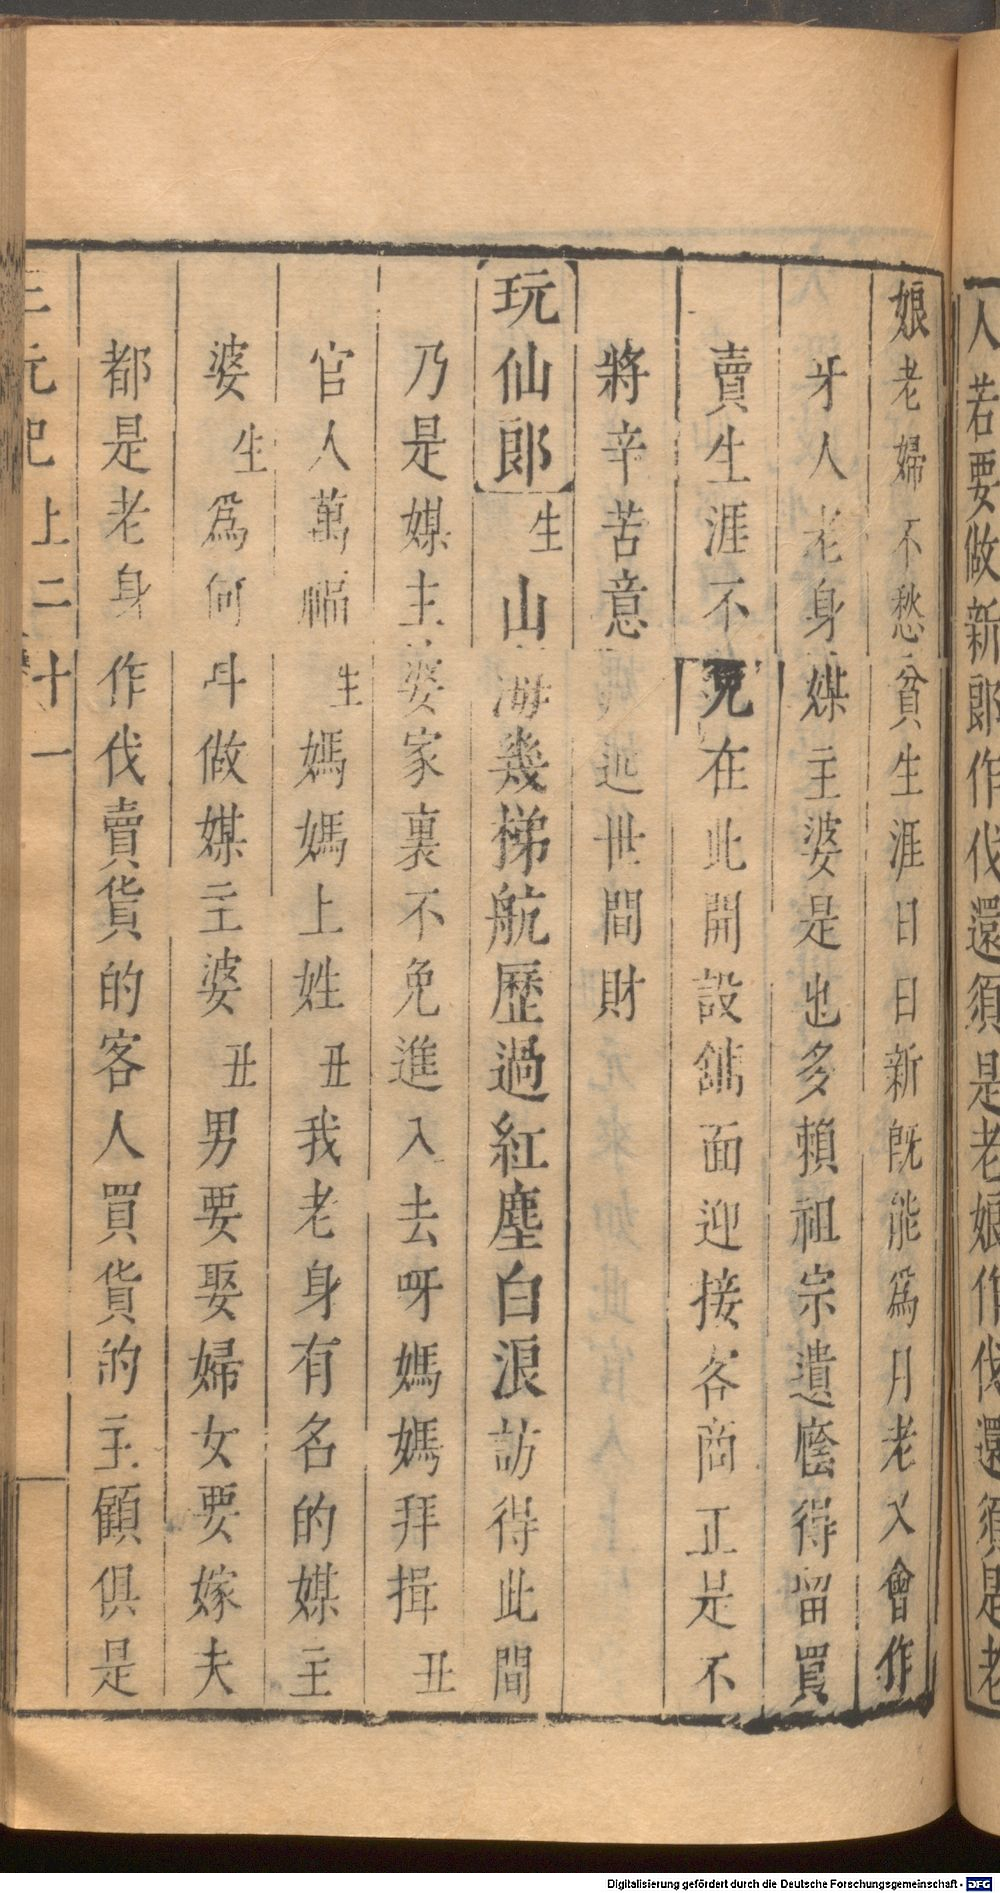 人若要做新郎作伐還須是老娘作伐還須是老
娘老婦不愁貧生涯日日新旣能爲月老又會作
牙人老身媒主婆是也多賴祖宗遺廕得畱買
賣生涯不免在此開設舖面迎接客商正是不
將辛苦意 世間財
【玩仙郎】生山海幾梯航歷過紅塵白浪訪得此間
乃是媒主婆家裏不免進入去呀媽媽拜揖丑
官人萬福生媽媽上姓丑我老身有名的媒主
婆生爲何叫做媒主婆丑男要娶婦女要嫁夫
都是老身作伐賣貨的客人買貨的主顧俱是
三元記上二十一
Digitalisierung gefördert durch die Deutsche Forschungsgemeinschaft - DFG